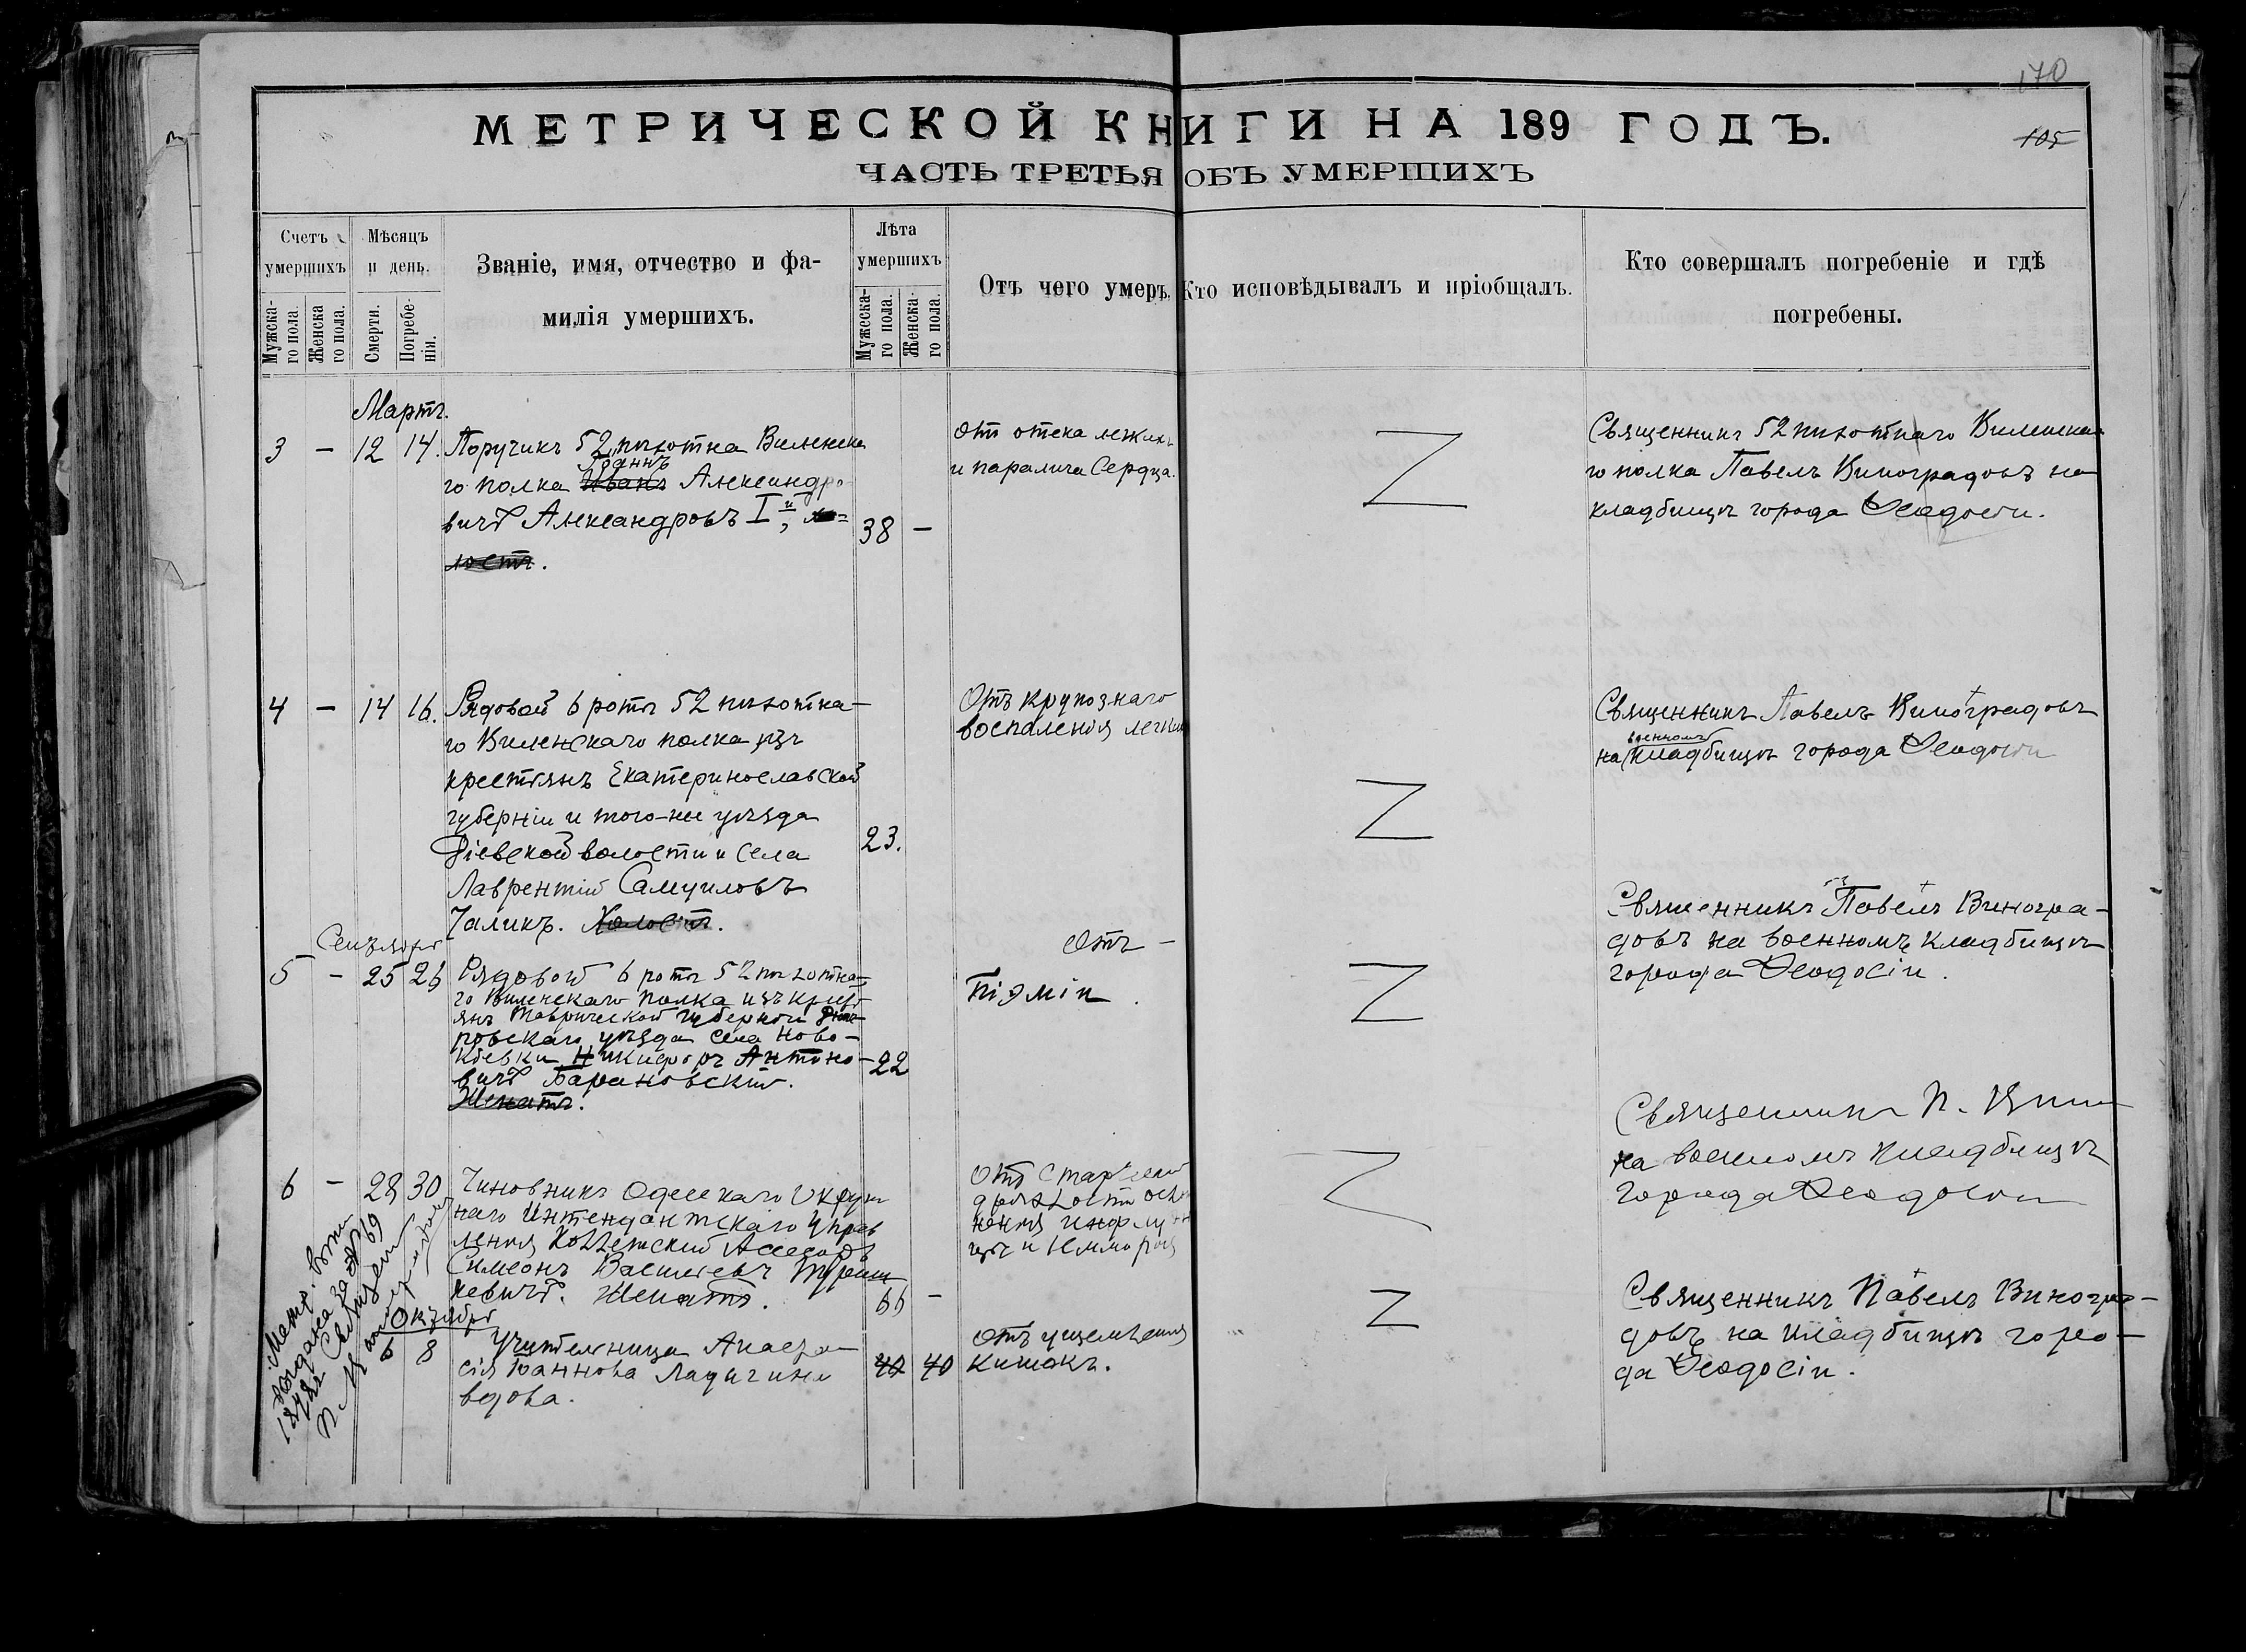 170
105
МЕТРИЧЕСКОЙ КНИГИ НА 189 ГОДЪ.
ЧАСТЬ ТРЕТЬЯ ОБЪ УМЕРШИХЪ
Счетъ умершихъ
Мужска-го пола.
Женска го пола.
Мѣсяцъ и день.
Смерти.
Погребе-нія.
Званіе, имя, отчество и фа-
милія умершихъ.
Лѣта умершихъ
Мужеска-го пола.
Женска-го пола.
Отъ чего умеръ.
Кто исповѣдывалъ и пріобщалъ.
Кто совершалъ погребеніе и гдѣ
погребены.
Мартъ.
3 — 12 14.
Поручикъ 52 пѣхотна Виленска
Іоаннъ
го полка Иванъ Александро
вичъ Александровъ I й, хо=
лостъ.
38 —
отъ отека легкихъ
и паралича Сердца.
Священникъ 52 пѣхотнаго Виленска
го полка Павелъ Виноградовъ на
кладбищѣ города Ѳеодосіи.
4 — 14 16.
Рядовой 6 роты 52 пѣхотна—
го Виленскаго полка изъ
крестянъ Екатеринославской
губерніи и того-же уѣзда
Діевской волости и села
Лаврентій Самуиловъ
Чаликъ. Холостъ.
23.
Отъ крупознаго
воспаленія легких
Священникъ Павелъ Виноградовъ
военномъ
на кладбищѣ города Ѳеодосіи
Сентября
5 — 25 26
Рядовой 6 роты 52 пѣхотна—
го Виленскаго полка изъ крест
янъ Таврической губерніи Днѣп
ровскаго уѣзда села Ново—
Кіевки Никифоръ Антоно—
вичъ Барановскій.
Женатъ.
22
Отъ —
Піэміи.
Священникъ Павелъ Виногра—
довъ на военномъ кладбищѣ
города Ѳеодосіи.
6 — 28 30
Чиновникъ Одесскаго Окруж
наго Интендантскаго Управ
ленія Коллежский Ассесоръ
Симеонъ Василіевъ
кевичъ. Женатъ.
66 —
Отъ Старческой
дряхлости
Священникъ П. Вин
на военномъ кладбищѣ
города Ѳеодосіи
Метр.
выдана за № 69
Октября
6 8
Учительница Анаста
сія Іоаннова
вдова.
40 40
отъ ущемленія
кишокъ.
Священникъ Павелъ Виногра—
довъ на кладбищѣ горо—
да Ѳеодосіи.